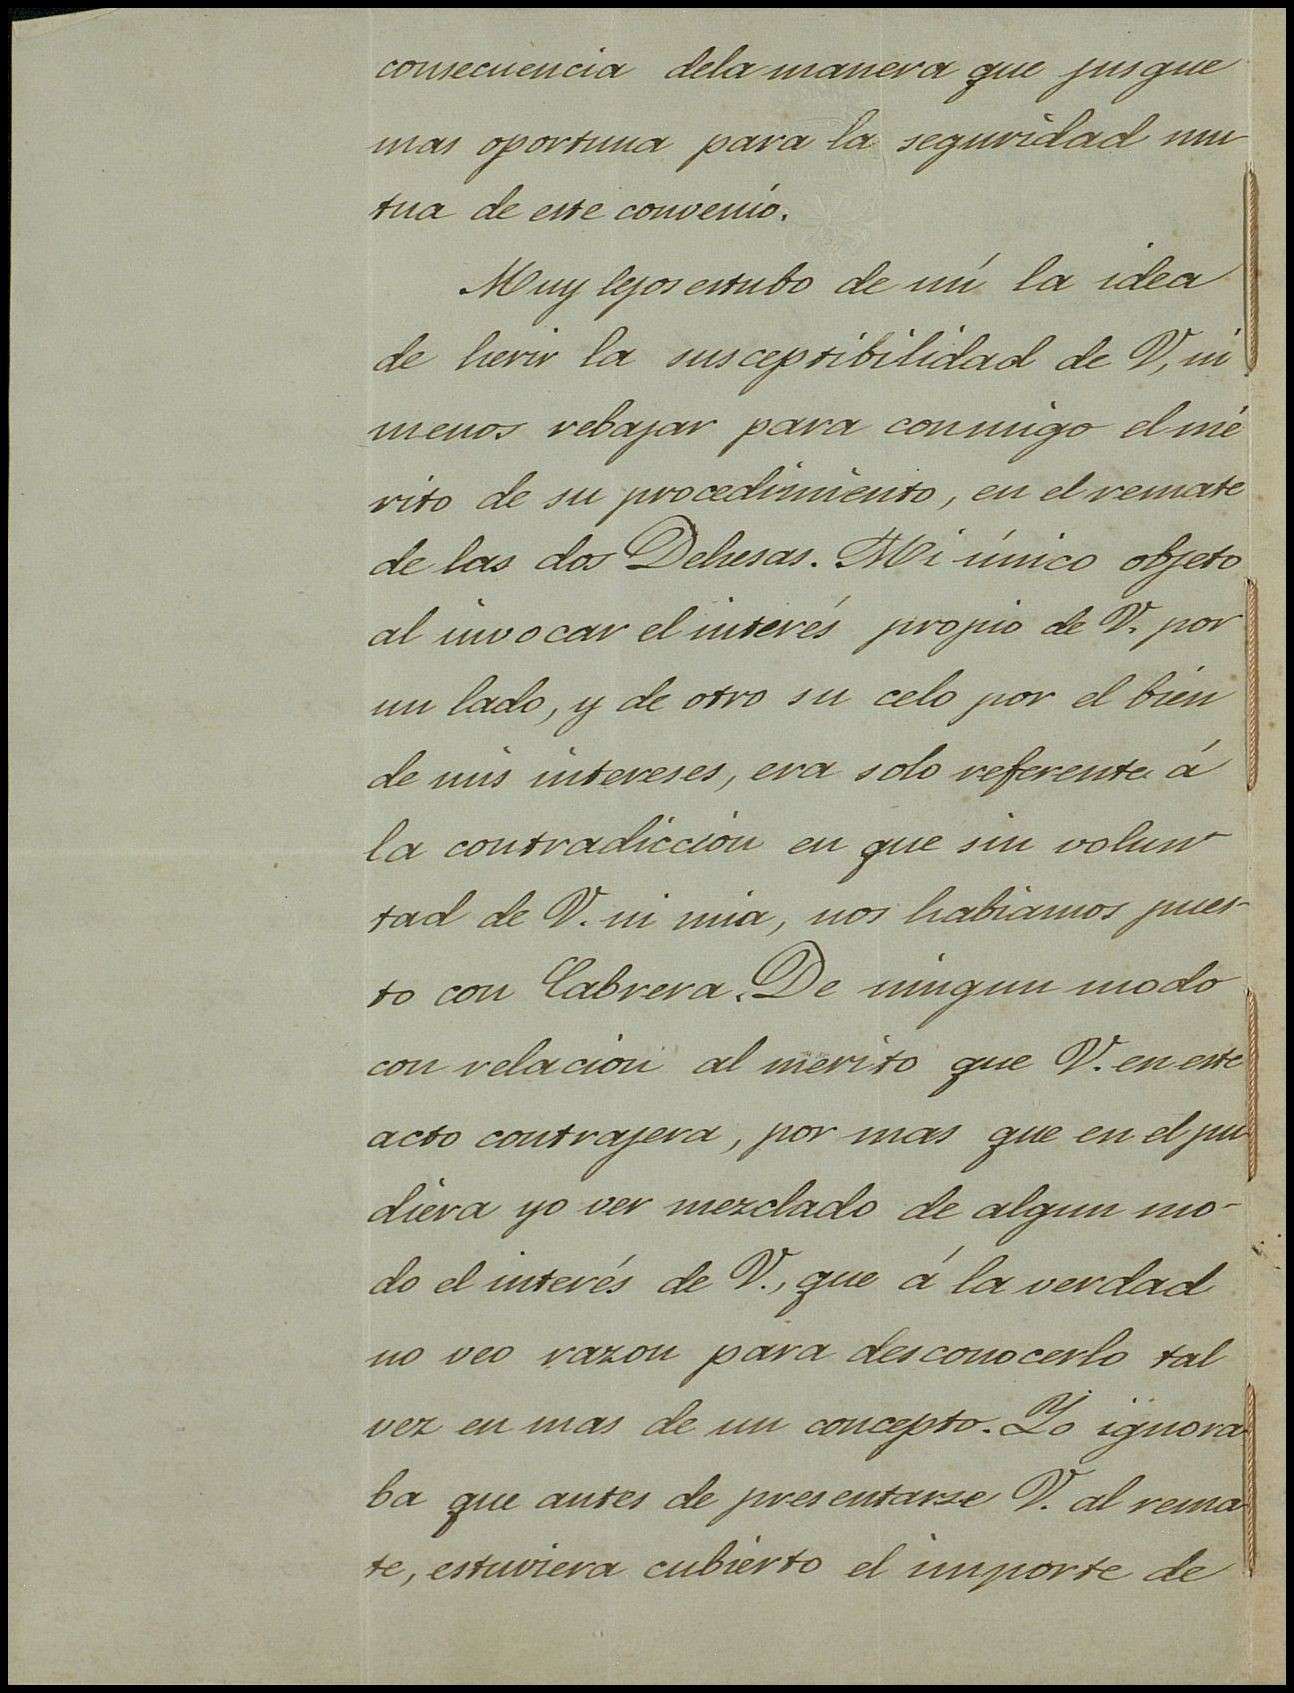 consecuencia dela manera que jusgue
mas oportuna para la seguridad mu-
tua de este convenio.
Muy lejos estubo de mí la idea
de herir la susceptibilidad de V, ni
menos rebajar para conmigo el mé
rito de su procedimiento, en el remate
de las dos Dehesas. Mi único objeto
al invocar el interés propio de V. por
un lado, y de otro su celo por el bien
de mis intereses, era solo referente á
la contradiccion en que sin volun-
tad de V. ni mia, nos habiamos pues-
to con Cabrera. De ningun modo
con relacion al merito que V. en este
acto contrajera, por mas que en el pu-
diera yo ver mezclado de algun mo-
do el interés de V., que á la verdad
no veo razon para desconocerlo tal
vez en mas de un concepto. Yo ignora-
ba que antes de presentarse V. al rema-
te, estuviera cubierto el importe de